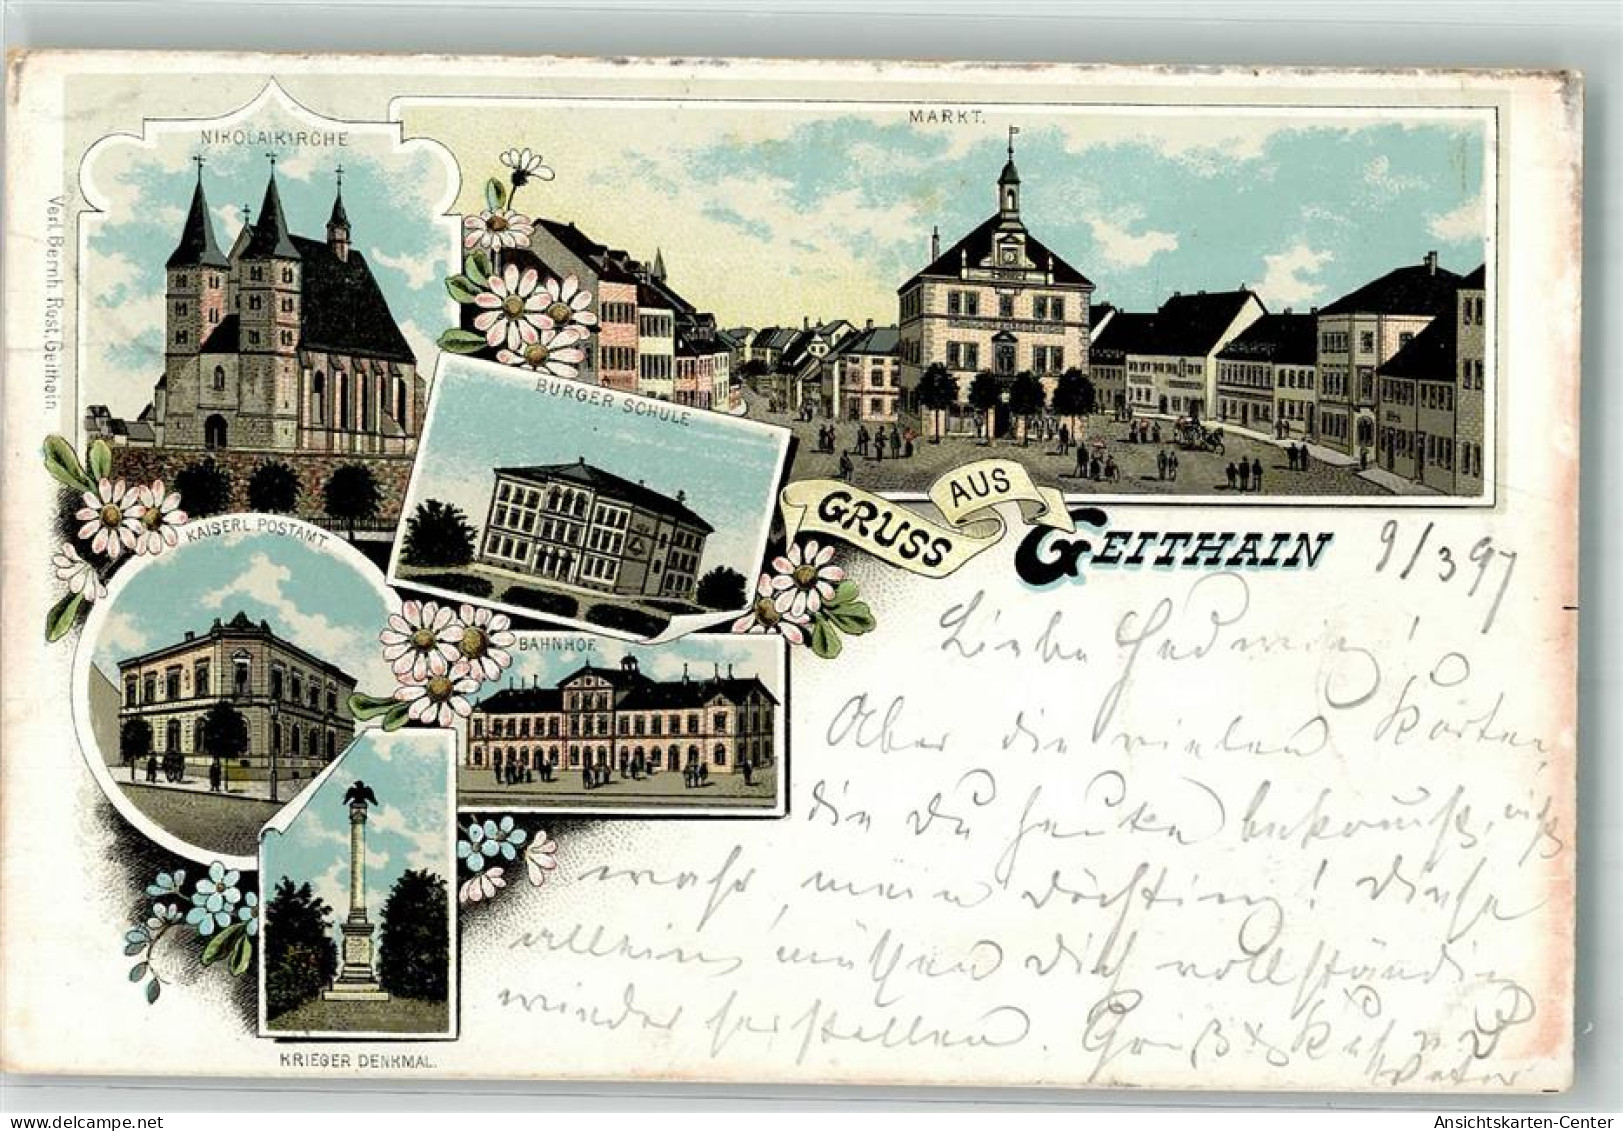 NIKOLAIKIRCHE
MARKT.
Verl. Bernh. Rost, Geithain.
BURGER SCHULE
KAISERL. POSTAMT
BAHNHOF.
KRIEGER DENKMAL.
GRUSS AUS GEITHAIN
9/3 97
Liebe Hedwig!
Aber die vielen Karten,
die Du heute bekommst, nicht
wahr, mein Döchting! Diese
allein müssen Dich vollständig
wieder herstellen. Gruß & Kuß
Vater
Ansichtskarten-Center